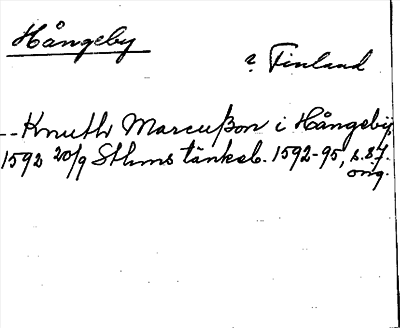 Hångeby
? Finland
-- Knuth Marcußon i Hångeby,
1592 20/9 Sthms tänkeb. 1592-95, s. 87.
orig.